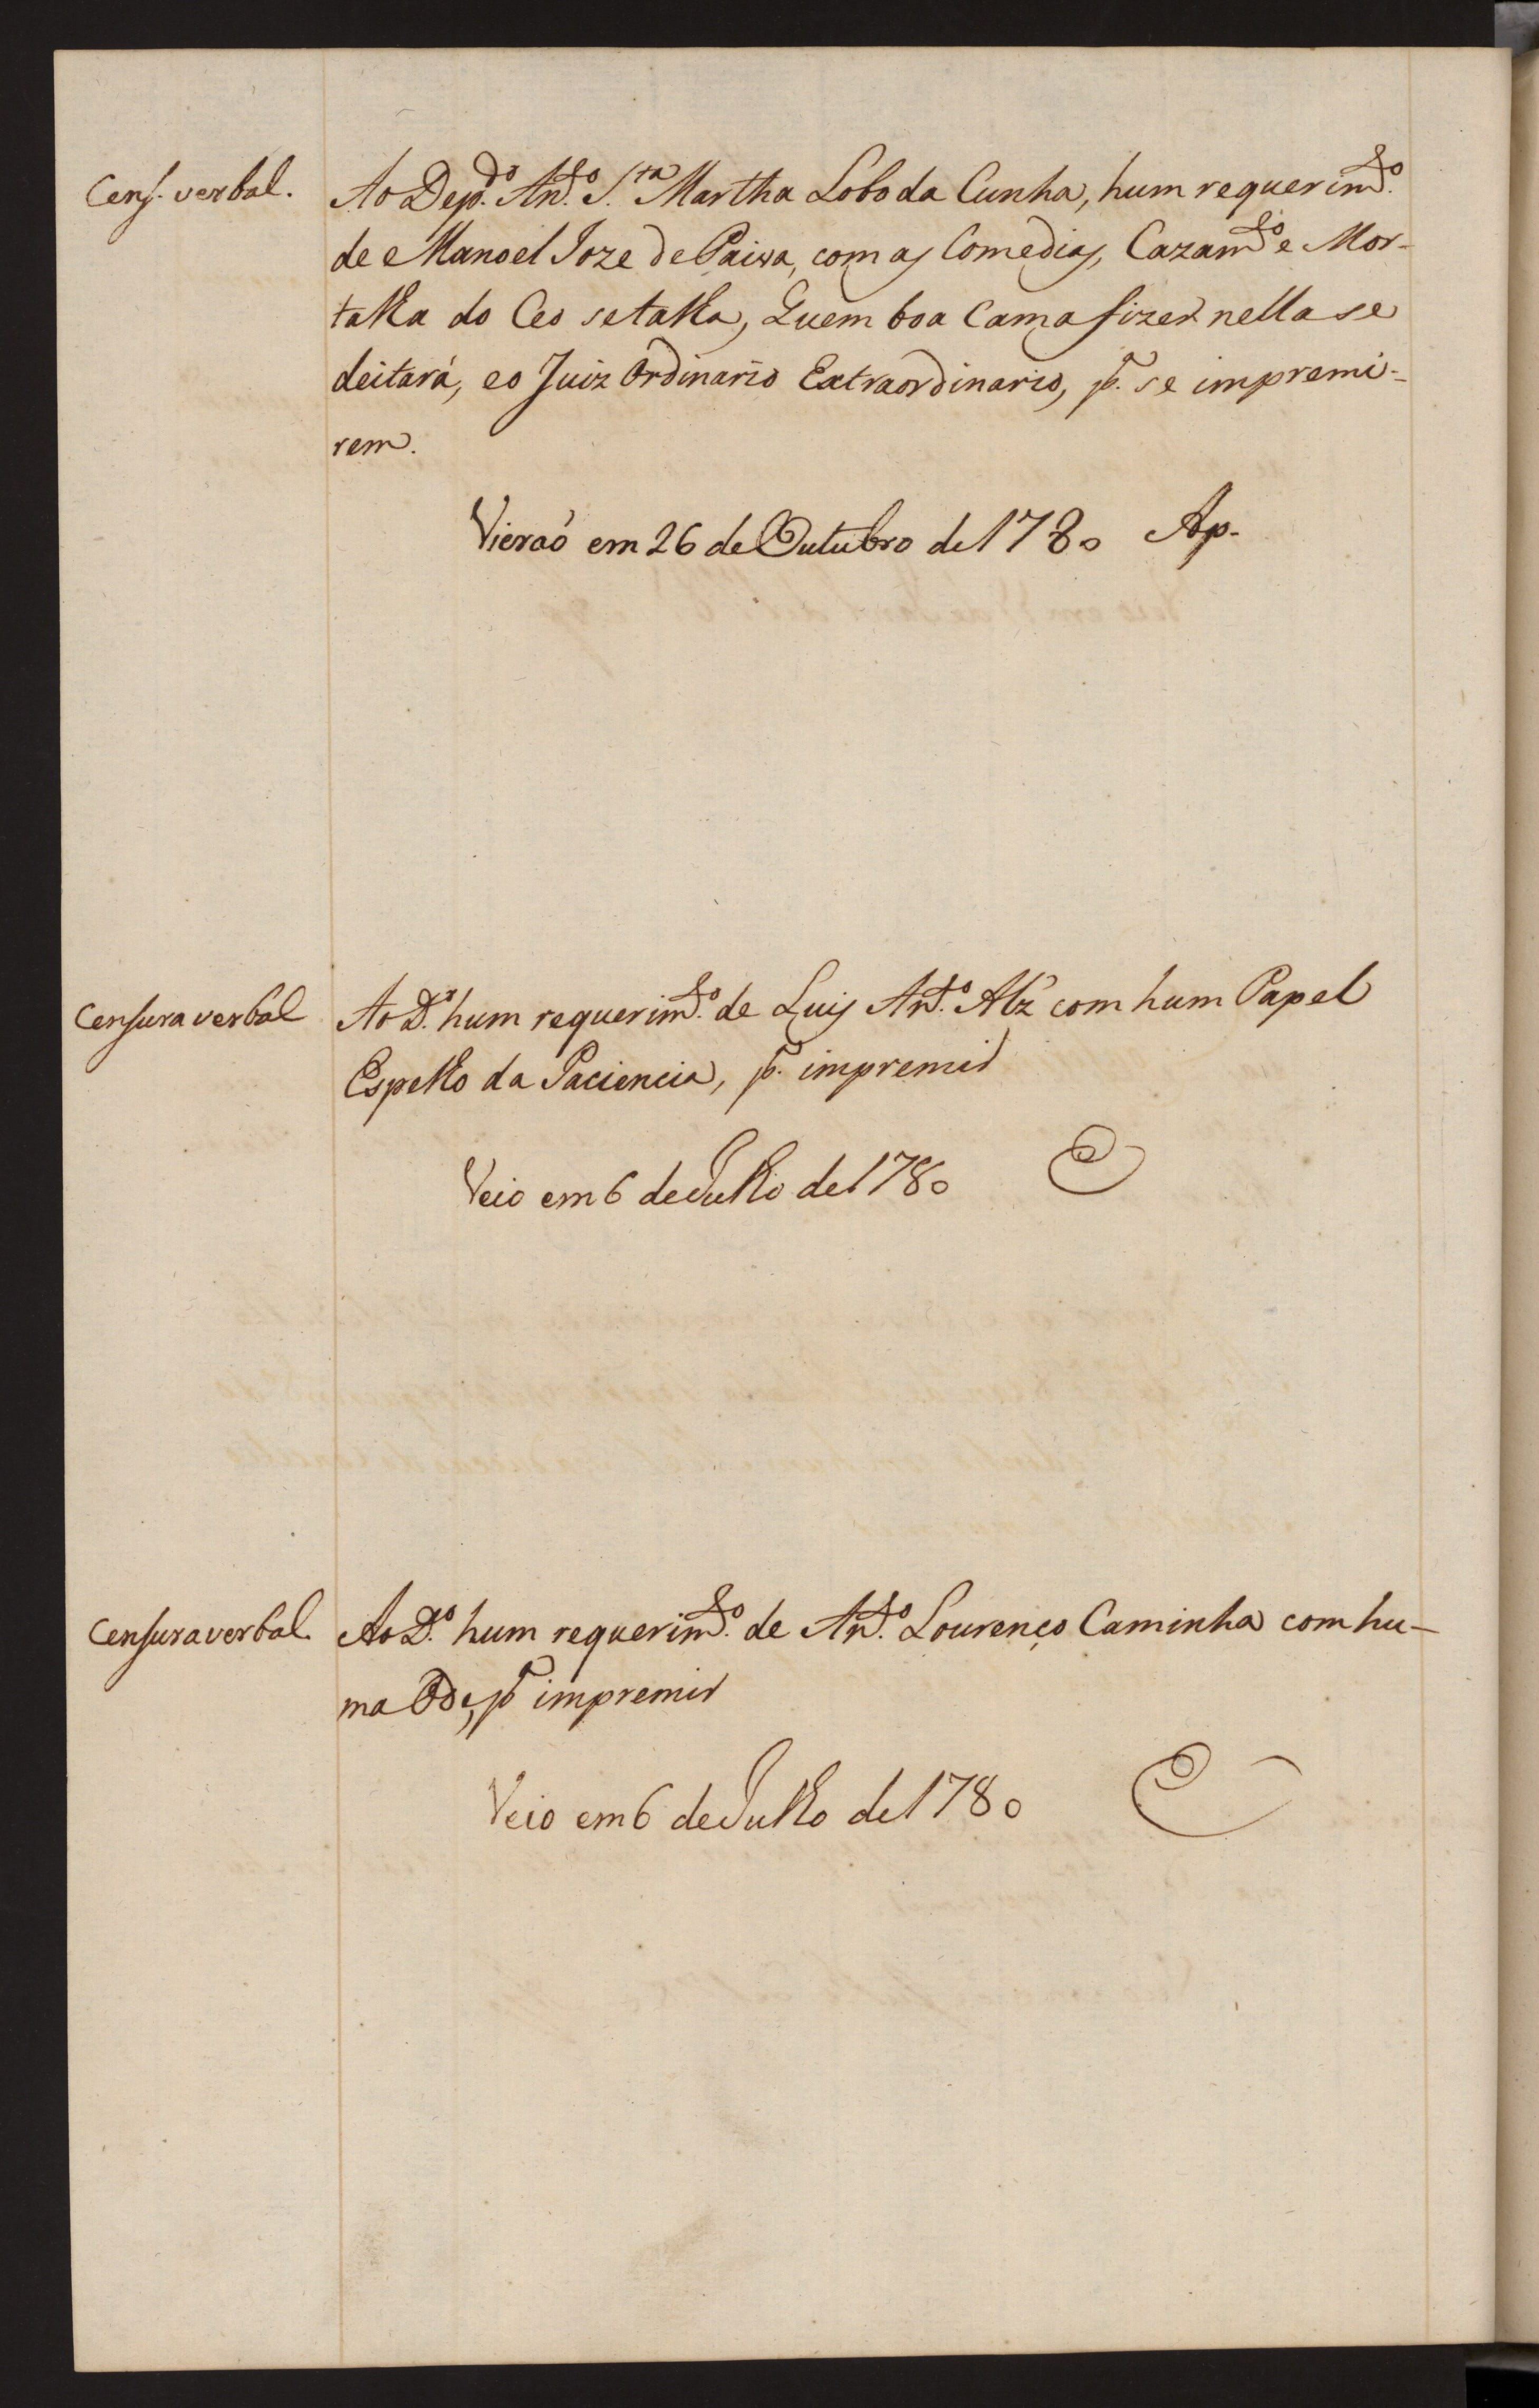 Cens. verbal.
Ao Dep.do An.to S.ta Martha Lobo da Cunha, hum requerim.to
de Manoel Joze de Paiva, com as Comedias, Cazam.to e Mor-
talha do Ceo se talha, Quem boa Cama fizer nella se
deitará, e o Juiz Ordinario Extraordinario, p.a se impremi-
rem.
Vieraõ em 26 de Outubro de 1780 Ap.
Censura verbal
Ao D.o hum requerim.to de Luis An.to Alz com hum Papel
Espelho da Paciencia, p.a impremir
Veio em 6 de Julho de 1780
Censura verbal.
Ao D.o hum requerim.to de An.to Lourenço Caminha com hu-
ma Ode, p.a impremir
Veio em 6 de Julho de 1780